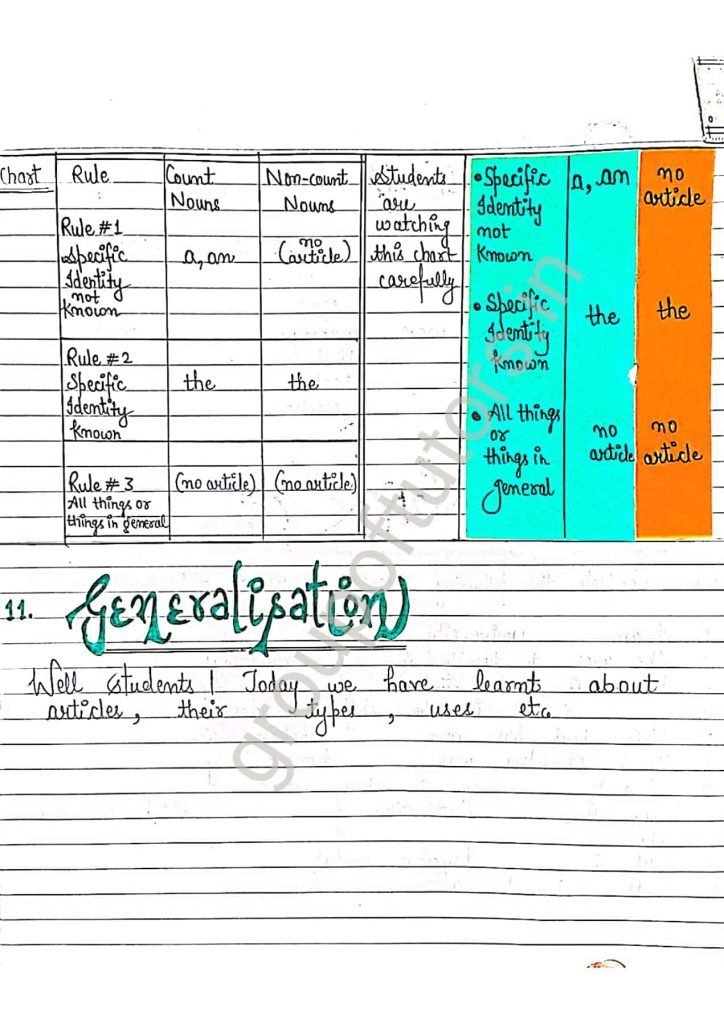 Chart
Rule
Count
Nouns
Non-count
Nouns
Students
are
watching
this chart
carefully
Rule #1
Specific
Identity
not
Known
a, an
no
(article)
Rule #2
Specific
Identity
Known
the
the
Rule # 3
All things or
things in general
(no article)
(no article)
• Specific
Identity
not
Known
a, an
no
article
• Specific
Identity
Known
the
the
• All things
or
things in
general
no
article
no
article
11. Generalisation
Well students! Today we have learnt about
articles, their types, uses etc.
groupoftutors.in